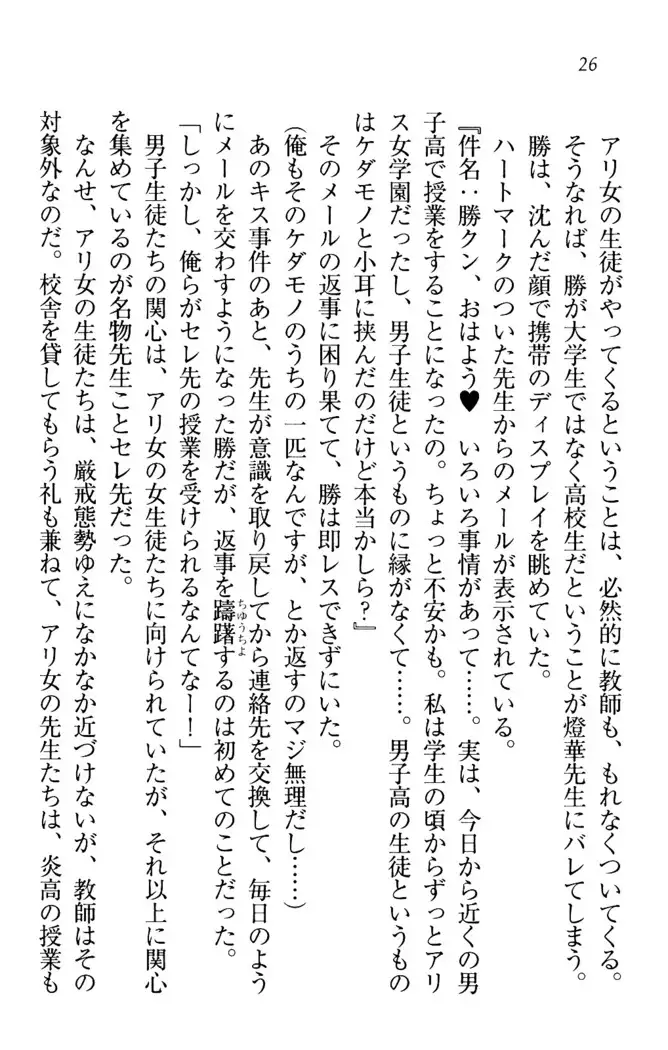 26
アリ女の生徒がやってくるということは、必然的に教師も、もれなくついてくる。
そうなれば、勝が大学生ではなく高校生だということが燈華先生にバレてしまう。
勝は、沈んだ顔で携帯のディスプレイを眺めていた。
ハートマークのついた先生からのメールが表示されている。
『件名：勝クン、おはよう♥　いろいろ事情があって……。実は、今日から近くの男
子高で授業をすることになったの。ちょっと不安かも。私は学生の頃からずっとアリ
ス女学園だったし、男子生徒というものに縁がなくて……。男子高の生徒というもの
はケダモノと小耳に挟んだのだけど本当かしら？』
そのメールの返事に困り果てて、勝は即レスできずにいた。
（俺もそのケダモノのうちの一匹なんですが、とか返すのマジ無理だし……）
あのキス事件のあと、先生が意識を取り戻してから連絡先を交換して、毎日のよう
にメールを交わすようになった勝だが、返事を躊躇するのは初めてのことだった。
ちゆうちよ
「しっかし、俺らがセレ先の授業を受けられるなんてなー！」
男子生徒たちの関心は、アリ女の女生徒たちに向けられていたが、それ以上に関心
を集めているのが名物先生ことセレ先だった。
なんせ、アリ女の生徒たちは、厳戒態勢ゆえになかなか近づけないが、教師はその
対象外なのだ。校舎を貸してもらう礼も兼ねて、アリ女の先生たちは、炎高の授業も